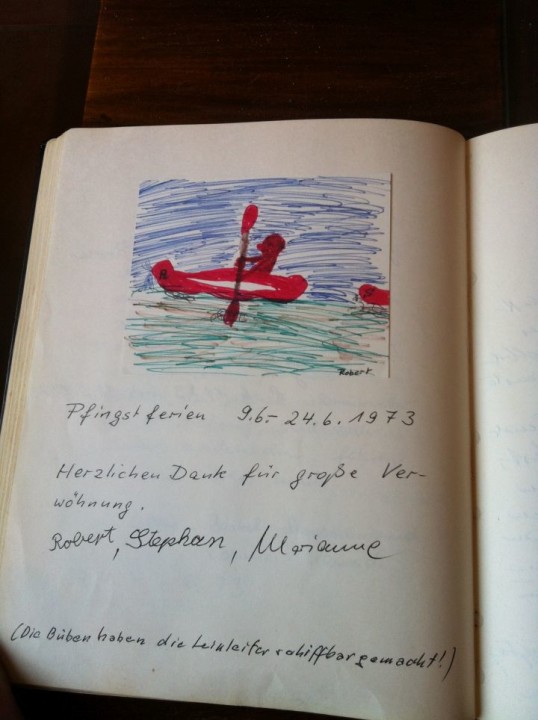 Robert.
Pfingstferien 9.6.- 24.6.1973
Herzlichen Dank für große Ver-
wöhnung.
Robert, Stephan, Marianne
(Die Buben haben die Leinleiter schiffbar gemacht!)